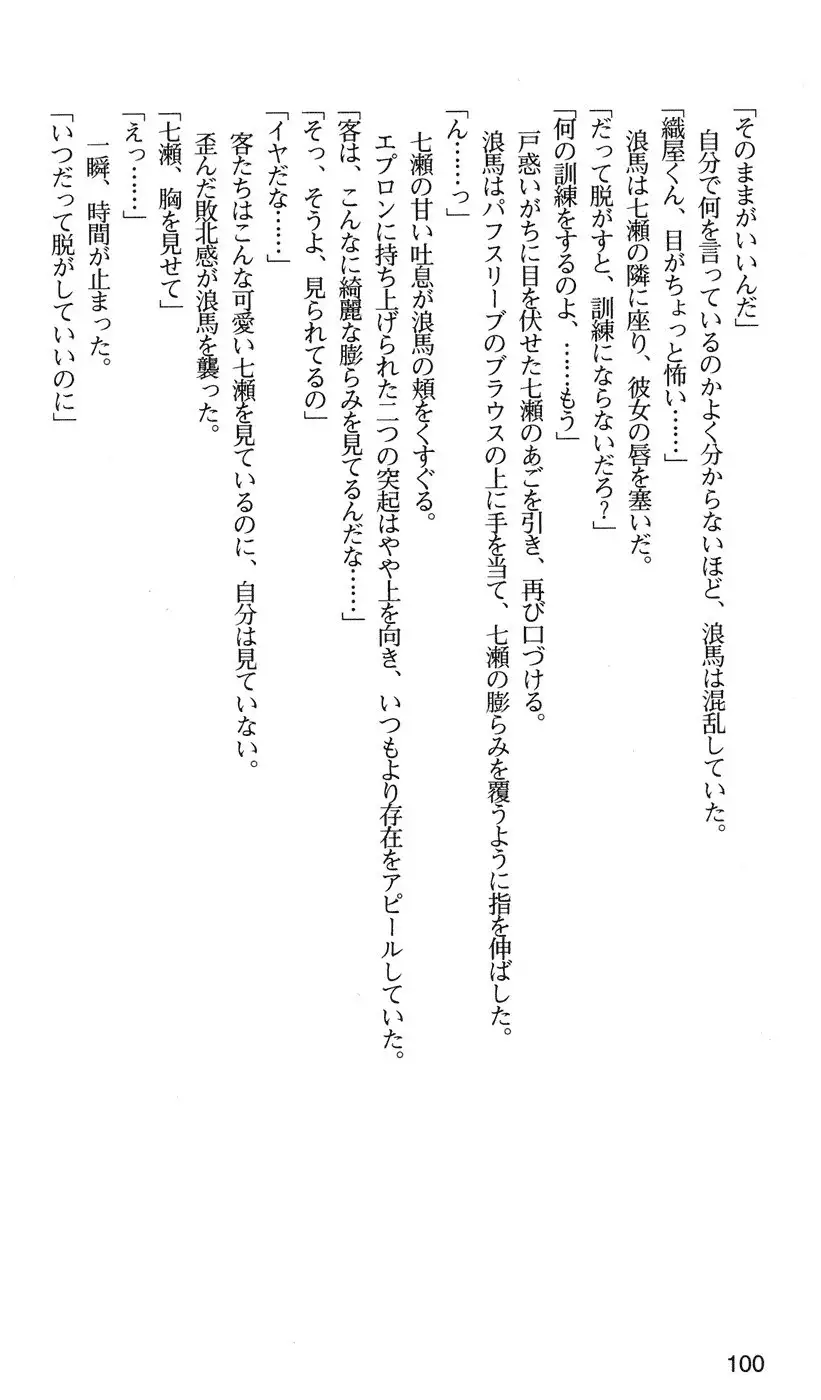 「そのままがいいんだ」
自分で何を言っているのかよく分からないほど、浪馬は混乱していた。
「織屋くん、目がちょっと怖い……」
浪馬は七瀬の隣に座り、彼女の唇を塞いだ。
「だって脱がすと、訓練にならないだろ?」
「何の訓練をするのよ、……もう」
戸惑いがちに目を伏せた七瀬のあごを引き、再び口づける。
浪馬はパフスリーブのブラウスの上に手を当て、七瀬の膨らみを覆うように指を伸ばした。
「ん……っ」
七瀬の甘い吐息が浪馬の頬をくすぐる。
エプロンに持ち上げられた二つの突起はやや上を向き、いつもより存在をアピールしていた。
「客は、こんなに綺麗な膨らみを見てるんだな……」
「そっ、そうよ、見られてるの」
「イヤだな……」
客たちはこんな可愛い七瀬を見ているのに、自分は見ていない。
歪んだ敗北感が浪馬を襲った。
「七瀬、胸を見せて」
「えっ……」
一瞬、時間が止まった。
「いつだって脱がしていいのに」
100